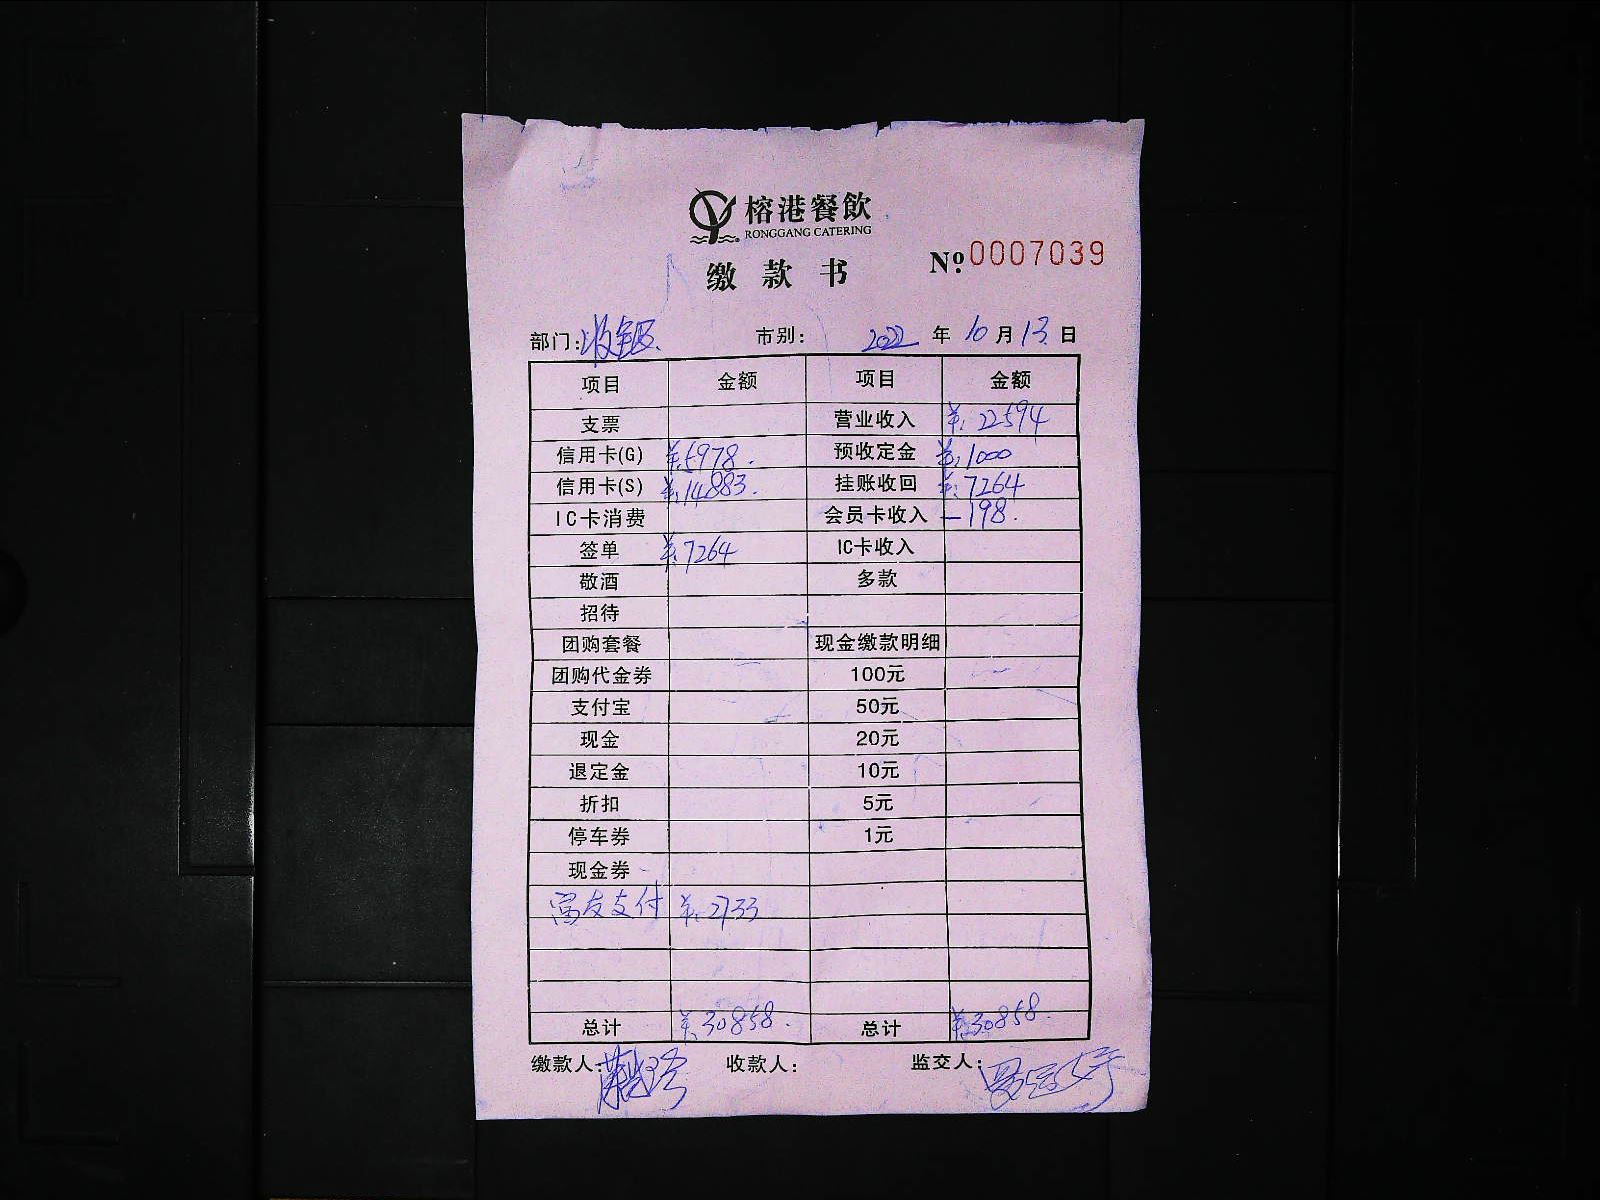 榕港餐飲
RONGGANG CATERING
缴款书
Nº 0007039
部门：收银 市别： 2022 年 10 月 13 日
项目 金额 项目 金额
支票 营业收入 ¥：22594
信用卡(G) ¥：5978. 预收定金 ¥：1000
信用卡(S) ¥：14883. 挂账收回 ¥：7264
IC卡消费 会员卡收入 —198.
签单 ¥：7264 IC卡收入
敬酒 多款
招待
团购套餐 现金缴款明细
团购代金券 100元
支付宝 50元
现金 20元
退定金 10元
折扣 5元
停车券 1元
现金券
富友支付 ¥：2733
总计 ¥：30858. 总计 ¥：30858.
缴款人： 收款人： 监交人：